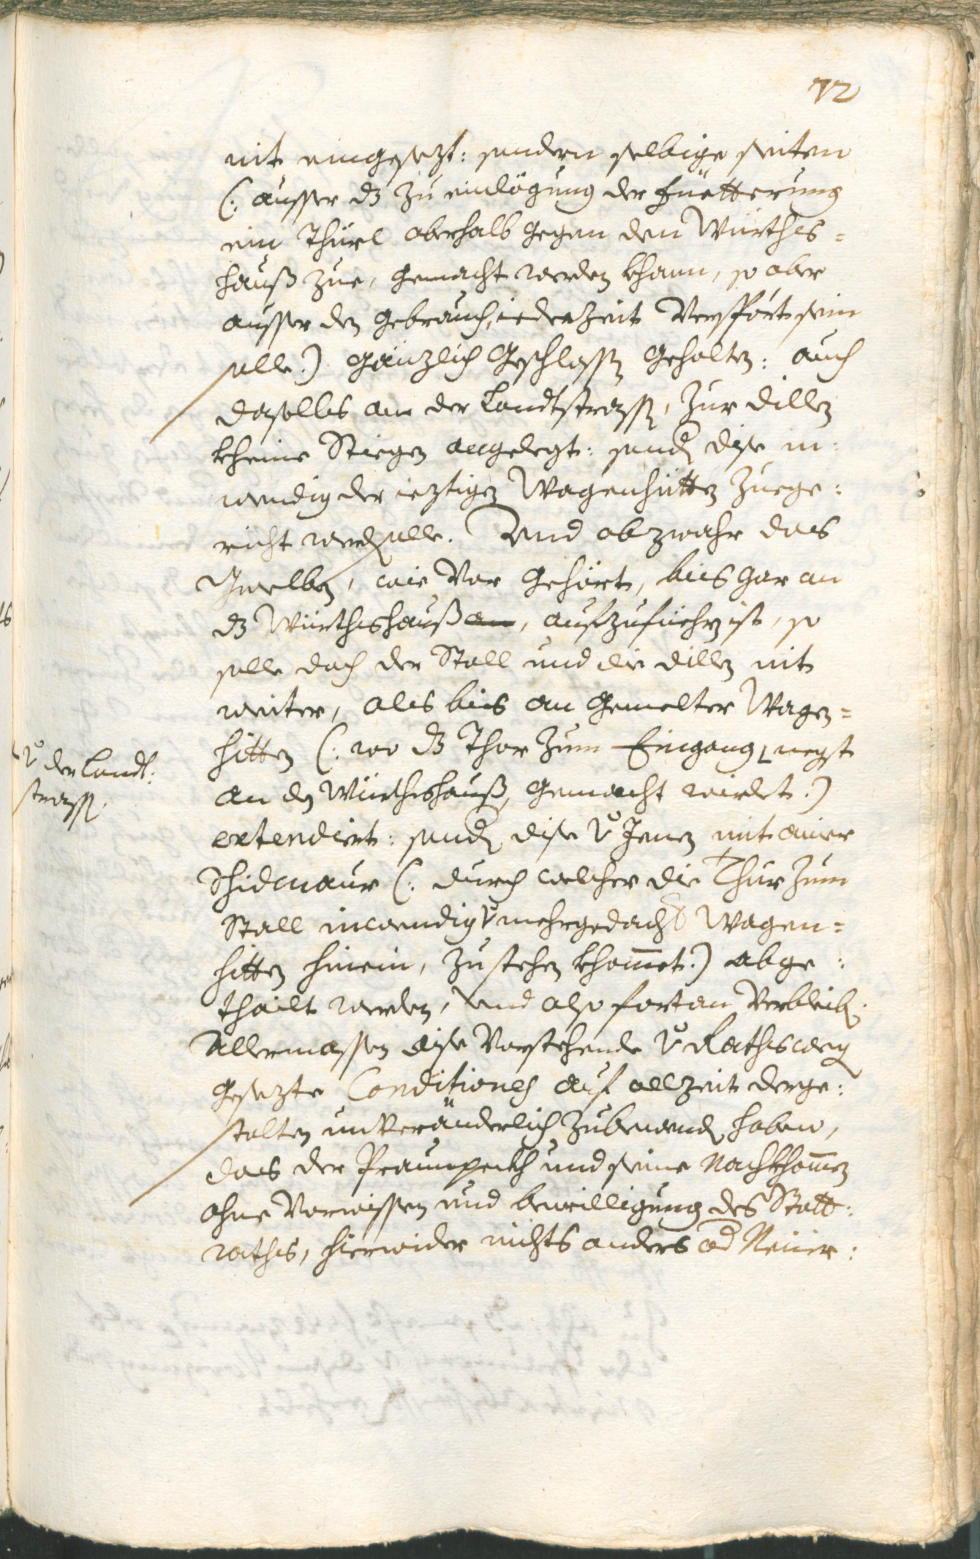 72
nit eingesezt: sondern selbige seiten
(: ausser dz zu einlögung der Fuetterung
ein Thürl oberhalb gegen den Würths=
hauß zue, gemacht werden khann, so aber
ausser den gebrauch, iederzeit Versport sein
solle :) gänzlich Geschlossen gehalten: auch
daselbs an der Landtstrassen, zur dillen
kheine Stiegen angelegt: sondern dise in=
wendig der ieztigen Wagenhütten zuege=
richt werden solle. Und obzwahr das
Gwelben, wie Vor gehört, bis gar an
dz Würthshauß an, aufzufüehren ist, so
solle doch der Stall und die dillen nit
weiter, als bis an gemelter Wagen=
hitten (: wo dz Thor zum Eingang negst
v. der Landt=
strassen.
an den Würthshauß, gemacht wirdet :)
extendirt: sondern dise v. Jenen mit ainer
Schidmaur (: durch welcher die Thür zum
Stall inwendig v. mehrgedachter Wagen=
hitten hinein, zu stehen khommet :) abge=
thailt werden, und also fortan Verbleiben.
Allermassen dise Vorstehende v. Raths weg
gesezte Conditiones auf allzeit derge=
stalten unveränderlich zubewenden haben,
das der Praunpeckh und seine Nachkhommen
ohne Vorwissen und bewilligung des Statt=
raths, hierwider nichts anders od Neuer=